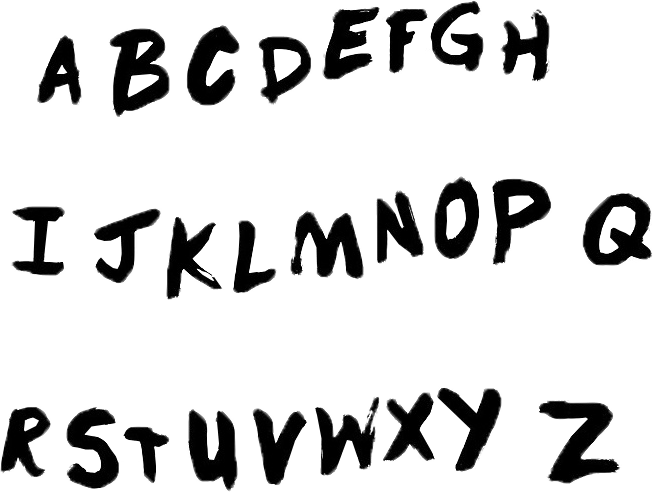 ABCDEFGH
IJKLMNOP Q
RSTUVWXY Z